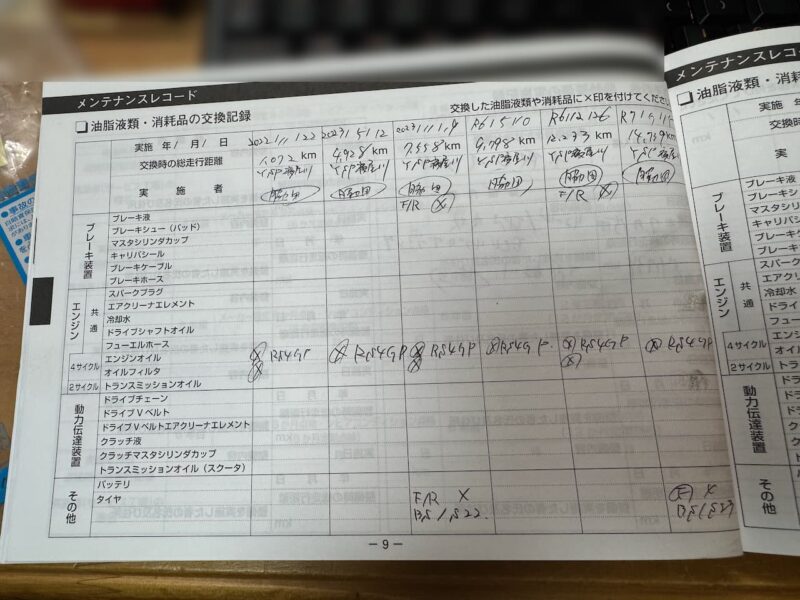 メンテナンスレコード
交換した油脂液類や消耗品に×印を付けてください
❏油脂液類・消耗品の交換記録
実施 年/月/日 2022/11/22 2023/5/12 2023/11/19 R6/5/10 R6/12/26
交換時の総走行距離 1,072 km 4,928 km 7,558 km 9,798 km 12,233 km 14,759 km
実施者
F/R × F/R ×
ブレーキ装置
ブレーキ液
ブレーキシュー(パッド)
マスタシリンダカップ
キャリパシール
ブレーキケーブル
ブレーキホース
エンジン
共通
スパークプラグ
エアクリーナエレメント
冷却水
ドライブシャフトオイル
フューエルホース
4サイクル
エンジンオイル × RS4GP × RS4GP × RS4GP × RS4GP × RS4GP × RS4GP
オイルフィルタ × × ×
2サイクル トランスミッションオイル
動力伝達装置
ドライブチェーン
ドライブVベルト
ドライブVベルトエアクリーナエレメント
クラッチ液
クラッチマスタシリンダカップ
トランスミッションオイル(スクータ)
その他
バッテリ
タイヤ F/R × F ×
BS/S22. BS/S22
− 9 −
メンテナンスレコ
❏油脂液類・消
実施 年
交換時
実
ブレーキ装置
ブレーキ液
ブレーキシ
マスタシリン
キャリパシー
ブレーキケ
ブレーキホ
エンジン
共通
スパークプ
エアクリー
冷却水
ドライブ
フューエ
4サイクル
エンジ
オイル
2サイクル トラ
動力伝達装置
ドラ
ドラ
ドラ
クラ
クラ
その他